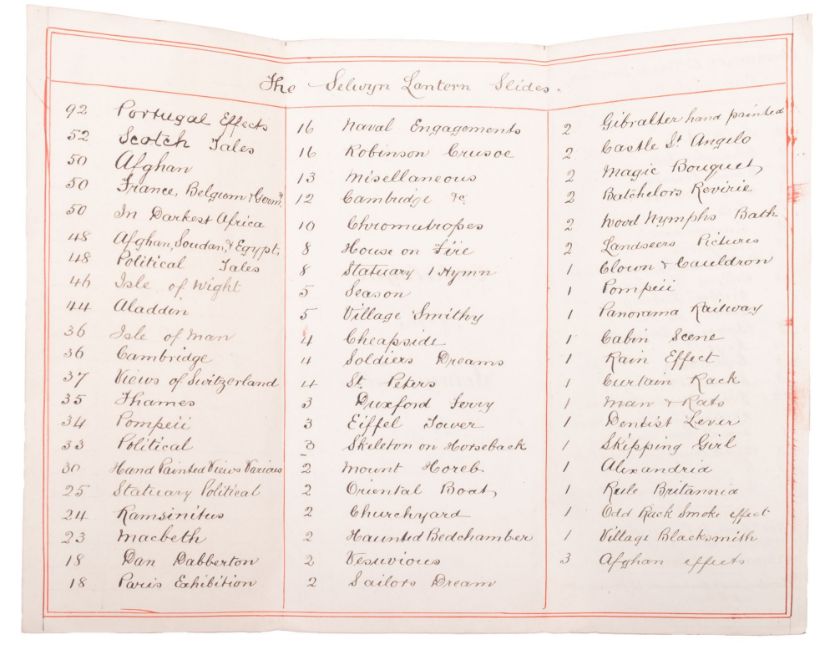 The Selwyn Lantern Slides.
92 Portugal Effects
52 Scotch Tales
50 Afghan
50 France, Belgium & Germ
50 In Darkest Africa
48 Afghan, Soudan, & Egypt,
48 Political Tales
46 Isle of Wight
44 Aladdin
36 Isle of Man
36 Cambridge
37 Views of Switzerland
35 Thames
34 Pompeii
33 Political
30 Hand Painted Views Various
25 Statuary Political
24 Ramsinitus
23 Macbeth
18 Dan Dabberton
18 Paris Exhibition
16 Naval Engagements
16 Robinson Crusoe
13 Miscellaneous
12 Cambridge &c
10 Chromutropes
8 House on Fire
8 Statuary 1 Hymn
5 Season
5 Village Smithy
4 Cheapside
4 Soldiers Dreams
4 St. Peters
3 Duxford Ferry
3 Eiffel Tower
3 Skeleton on Horseback
2 Mount Horeb
2 Oriental Boat,
2 Churchyard
2 Haunted Bedchamber
2 Vesuvious
2 Sailors Dream
2 Gibralter hand printed
2 Castle St Angilo
2 Magic Bouquet,
2 Batchelors Revirie
2 Wood Nymphs Bath
2 Landseers Pictures
1 Clown & Cauldron
1 Pompeii
1 Panorama Railway
1 Cabin Scene
1 Rain Effect
1 Curtain Rack
1 Man & Rats
1 Dentist Lever
1 Skipping Girl
1 Alexandria
1 Rule Britannia
1 Odd Rack Smoke effect
1 Village Blacksmith
3 Afghan effects